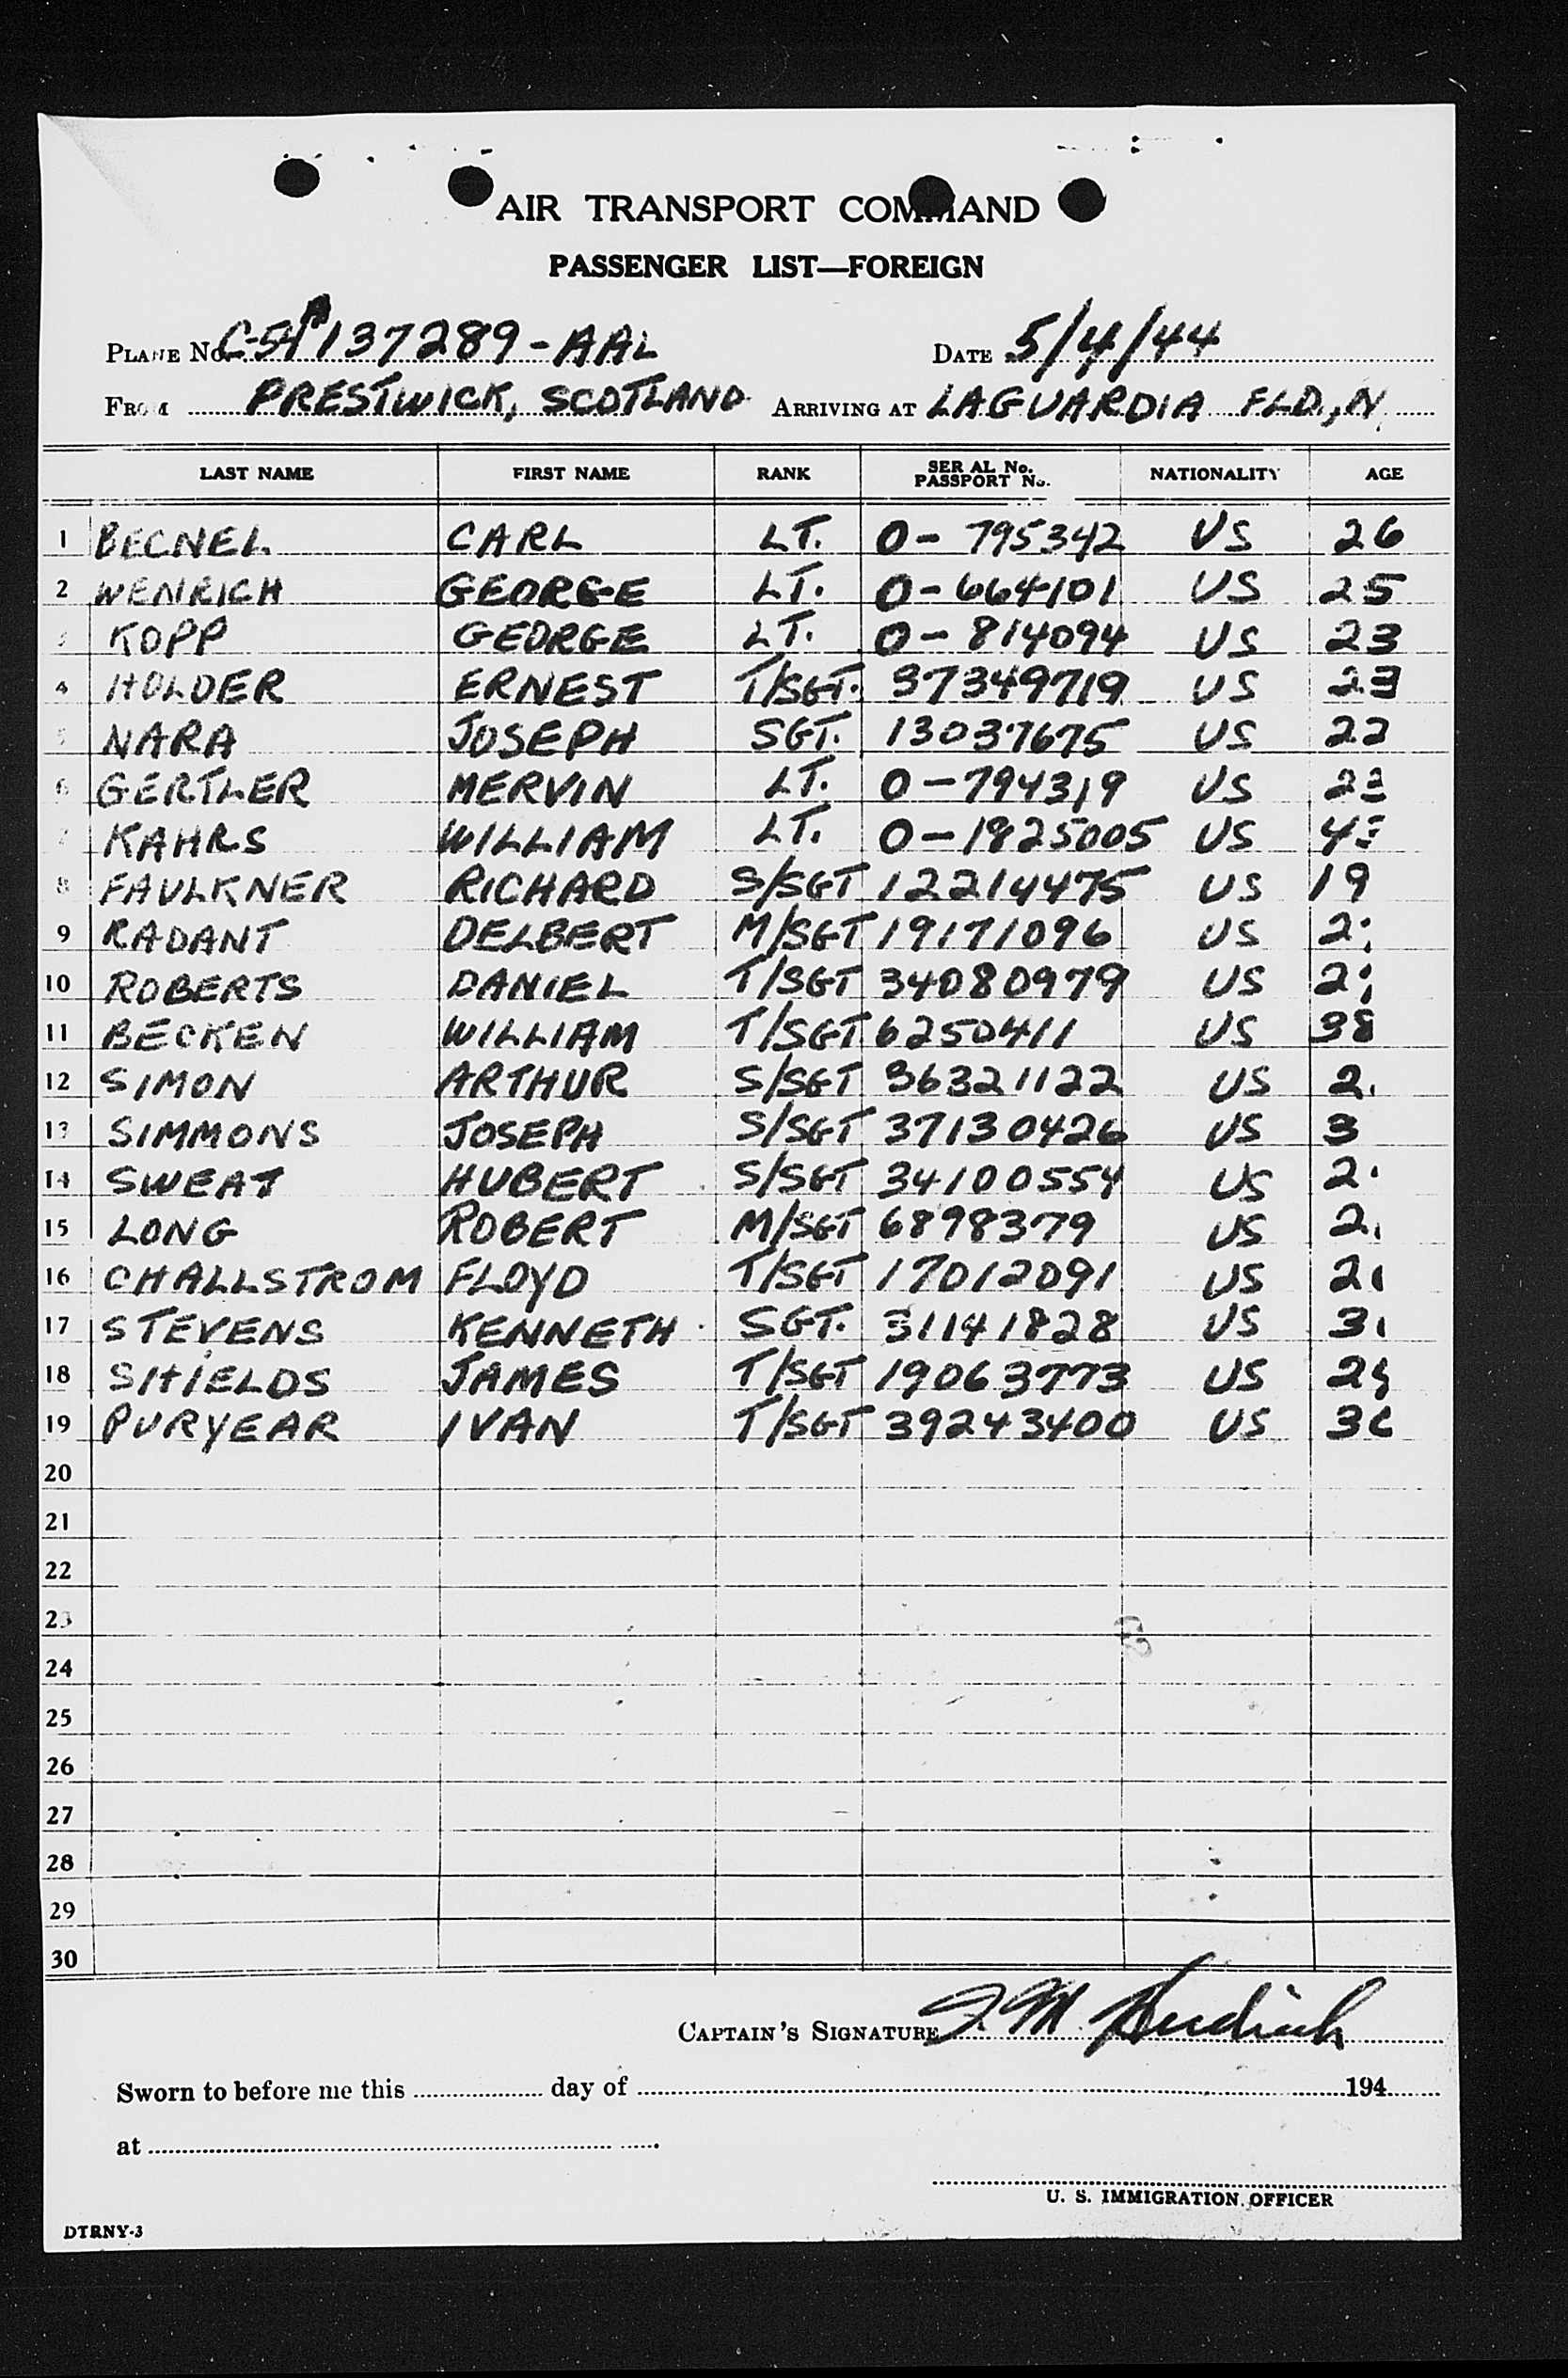 AIR TRANSPORT COMMAND
PASSENGER LIST—FOREIGN
PLANE No. C-54A 137289-AAL DATE 5/4/44
FROM PRESTWICK, SCOTLAND ARRIVING AT LAGUARDIA FLD., N
LAST NAME FIRST NAME RANK SERIAL No. PASSPORT No. NATIONALITY AGE
1 BECNEL CARL LT. O-795342 US 26
2 WENRICH GEORGE LT. O-664101 US 25
3 KOPP GEORGE LT. O-814094 US 23
4 HOLDER ERNEST T/SGT. 37349719 US 23
5 NARA JOSEPH SGT. 13037675 US 22
6 GERTLER MERVIN LT. O-794319 US
7 KAHRS WILLIAM LT. O-1825005 US
8 FAULKNER RICHARD S/SGT 12214475 US 19
9 RADANT DELBERT M/SGT 19171096 US
10 ROBERTS DANIEL T/SGT 34080979 US
11 BECKEN WILLIAM T/SGT 6250411 US 38
12 SIMON ARTHUR S/SGT 36321122 US
13 SIMMONS JOSEPH S/SGT 37130426 US
14 SWEAT HUBERT S/SGT 34100554 US
15 LONG ROBERT M/SGT 6898379 US
16 CHALLSTROM FLOYD T/SGT 17012091 US
17 STEVENS KENNETH SGT. 31141828 US
18 SHIELDS JAMES T/SGT 19063773 US
19 PURYEAR IVAN T/SGT 39243400 US
20
21
22
23
24
25
26
27
28
29
30
CAPTAIN'S SIGNATURE
Sworn to before me this day of 194
at
U. S. IMMIGRATION OFFICER
DTRNY-3